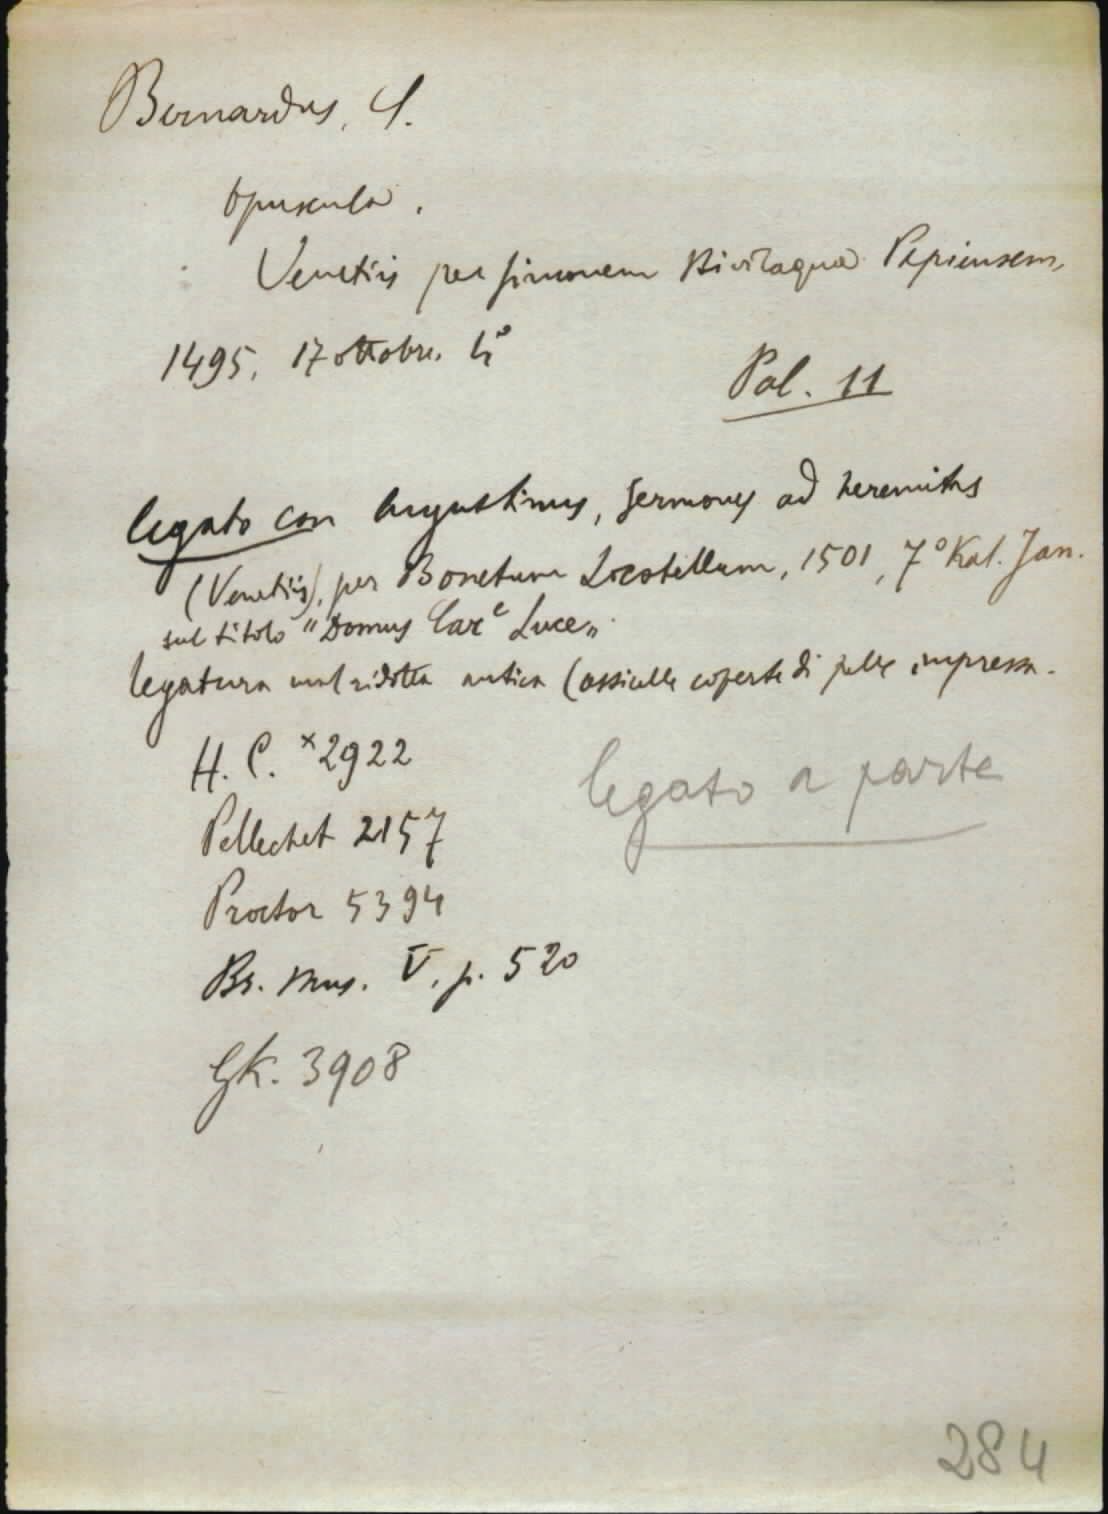 Bernardus, S.
Opuscula.
Venetiis per Simonem Bivilaqua Papiensem,
1495, 17 ottobre. 4°
Pal. 11
legato con Augustinus, Sermones ad heremitas
(Venetiis), per Bonetum Locatellum, 1501, 7° Kal. Jan.
sul titolo "Domus Car^e Luce„
legatura mal ridotta antica (assicelle coperte di pelle impressa.
H. C. *2922
legato a parte
Pellechet 2157
Proctor 5394
Br. Mus. V, p. 520
GK. 3908
284